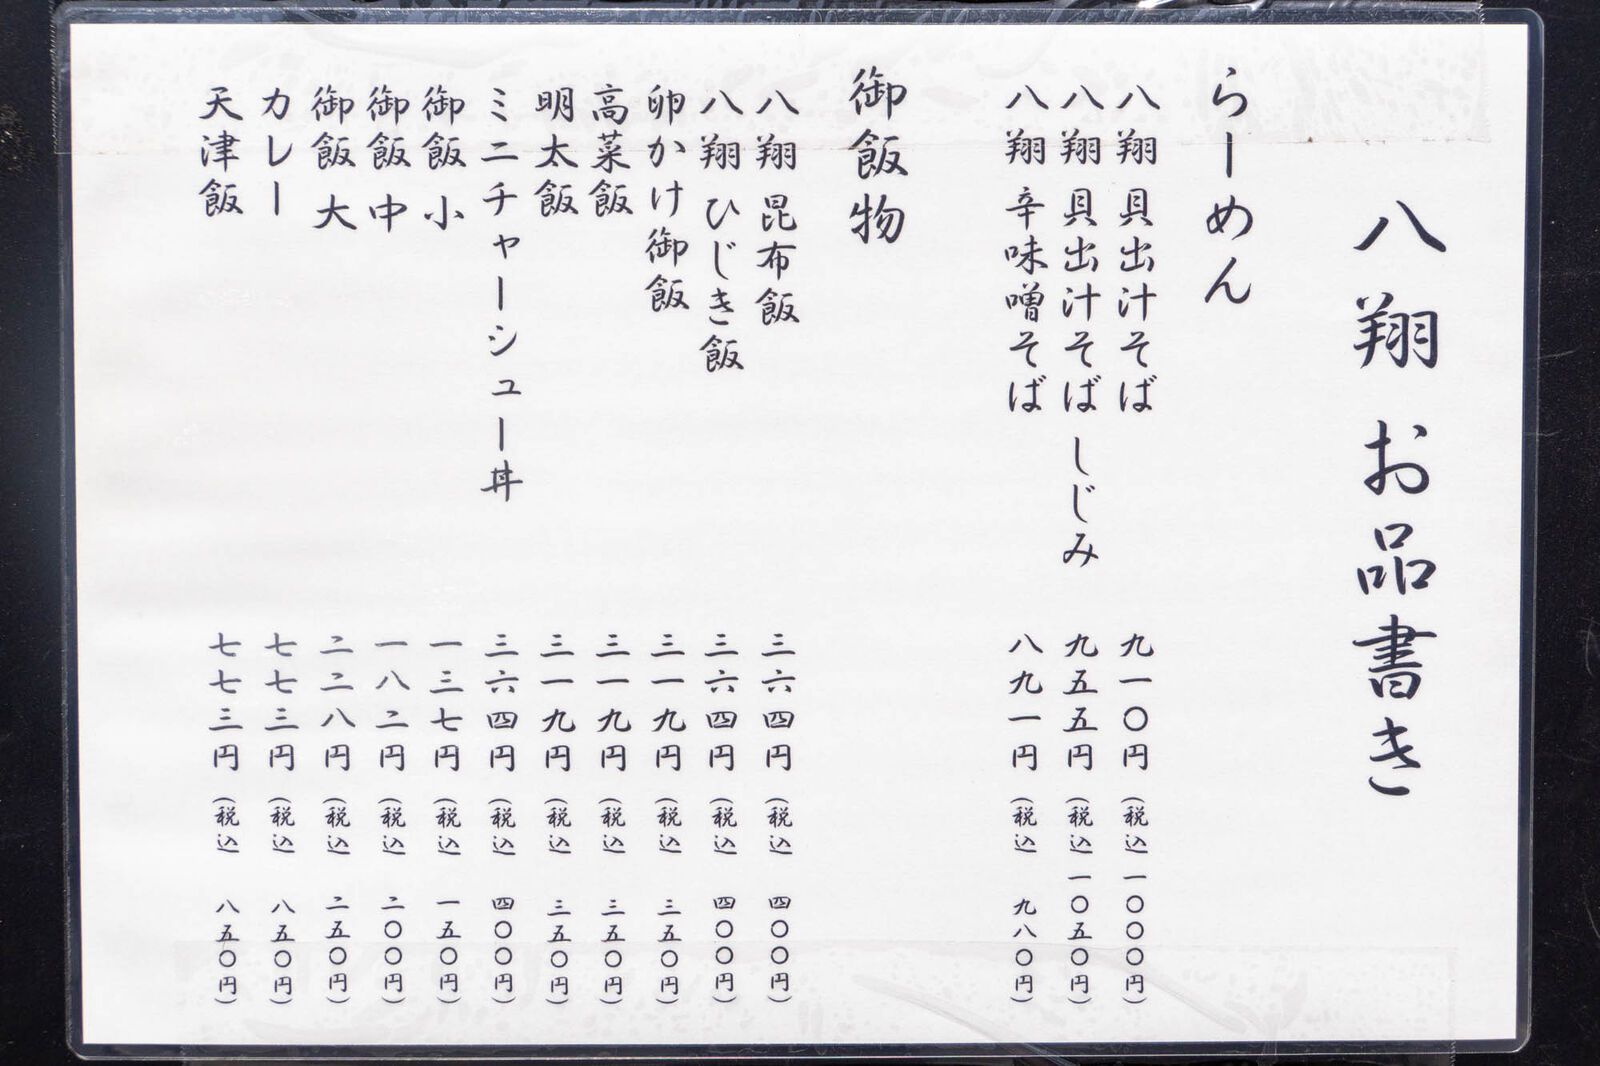 八翔 お品書き
らーめん
八翔 貝出汁そば 九一〇円(税込 一〇〇〇円)
八翔 貝出汁そば しじみ 九五五円(税込 一〇五〇円)
八翔 辛味噌そば 八九一円(税込 九八〇円)
御飯物
八翔 昆布飯 三六四円(税込 四〇〇円)
八翔 ひじき飯 三六四円(税込 四〇〇円)
卵かけ御飯 三一九円(税込 三五〇円)
高菜飯 三一九円(税込 三五〇円)
明太飯 三一九円(税込 三五〇円)
ミニチャーシュー丼 三六四円(税込 四〇〇円)
御飯 小 一三七円(税込 一五〇円)
御飯 中 一八二円(税込 二〇〇円)
御飯 大 二二八円(税込 二五〇円)
カレー 七七三円(税込 八五〇円)
天津飯 七七三円(税込 八五〇円)